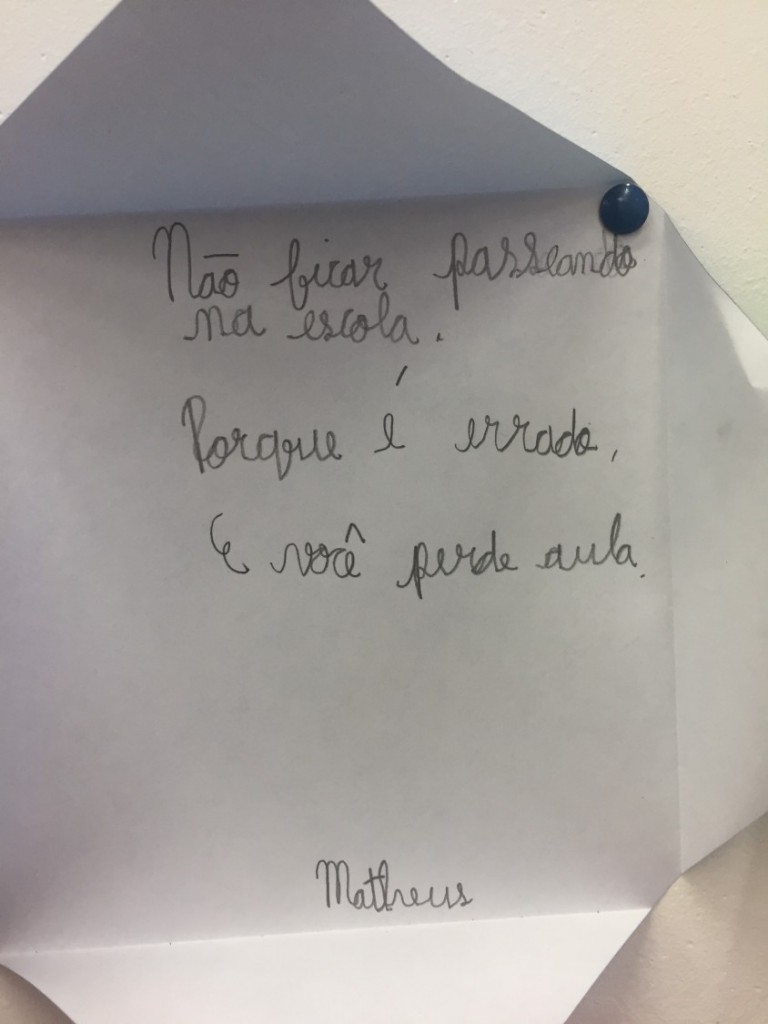 Não ficar passeando
na escola.
Porque é errado,
E você perde aula.
Matheus